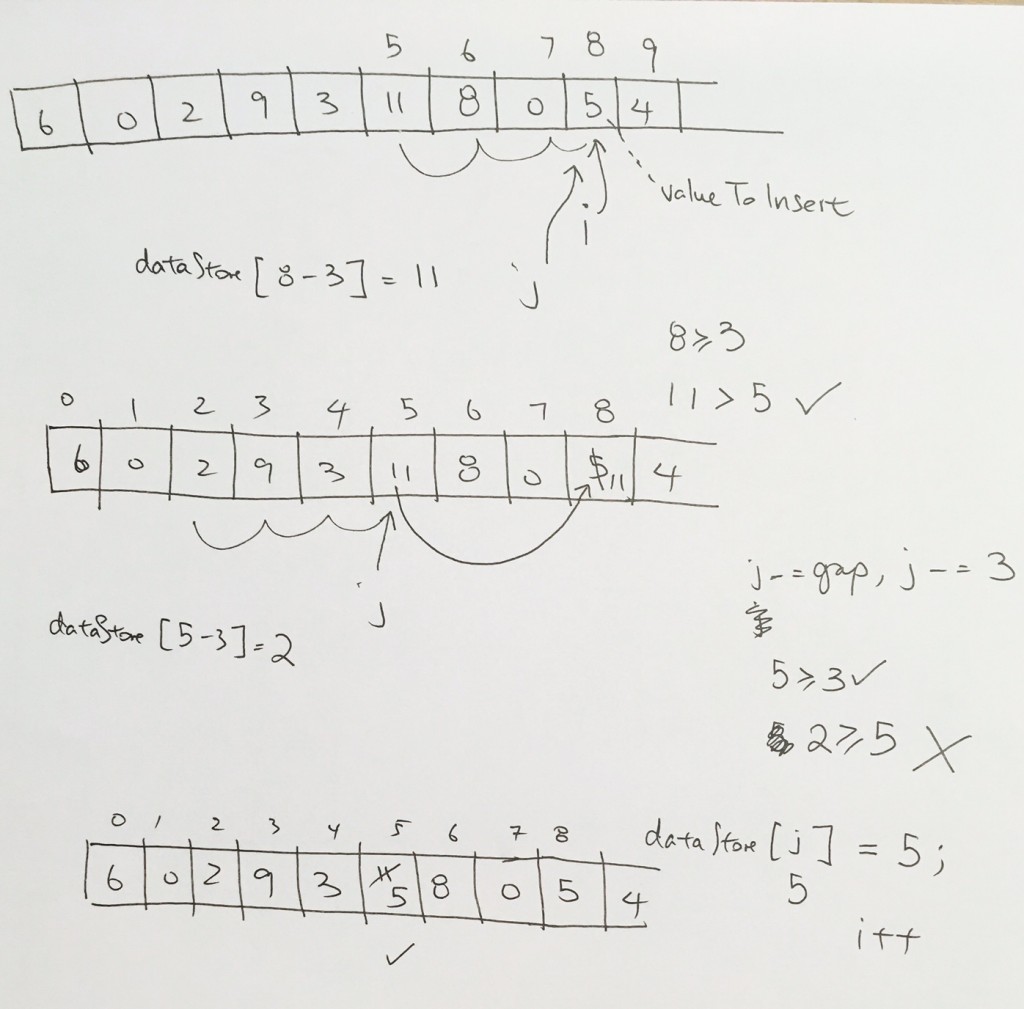 5 6 7 8 9
6 0 2 9 3 11 8 0 5 4
value To Insert
i
dataStore [8-3] = 11
j
8 ≥ 3
11 > 5 ✓
0 1 2 3 4 5 6 7 8
6 0 2 9 3 11 8 0 11 4
j -= gap, j -= 3
j
dataStore [5-3] = 2
5 ≥ 3 ✓
2 ≥ 5 X
0 1 2 3 4 5 6 7 8
dataStore [j] = 5;
6 0 2 9 3 5 8 0 5 4
5
i++
✓